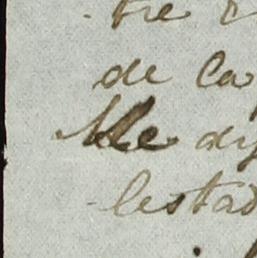 tre
de la
Me dij
lestad